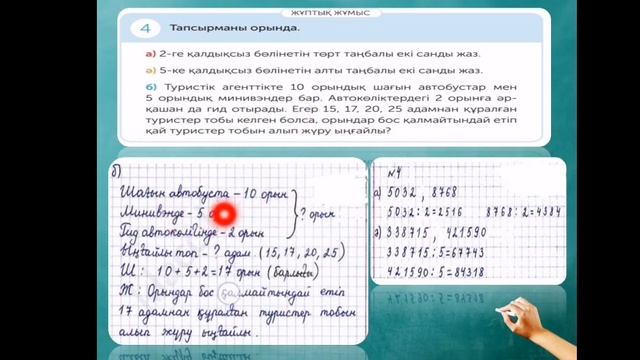 ЖҰПТЫҚ ЖҰМЫС
4 Тапсырманы орында.
а) 2-ге қалдықсыз бөлінетін төрт таңбалы екі санды жаз.
ә) 5-ке қалдықсыз бөлінетін алты таңбалы екі санды жаз.
б) Туристік агенттікте 10 орындық шағын автобустар мен
5 орындық минивэндер бар. Автокөліктердегі 2 орынға әр-
қашан да гид отырады. Егер 15, 17, 20, 25 адамнан құралған
туристер тобы келген болса, орындар бос қалмайтындай етіп
қай туристер тобын алып жүру ыңғайлы?
б)
Шағын автобуста – 10 орын
Минивэнде – 5
Гид автокөлігінде – 2 орын
? орын
Ыңғайлы топ – ? адам (15, 17, 20, 25)
Ш: 10 + 5 + 2 = 17 орын (барлығы)
Ж: Орындар бос қалмайтындай етіп
17 адамнан құралған туристер тобын
алып жүру ыңғайлы.
№4
а) 5032, 8768
5032 : 2 = 2516 8768 : 2 = 4384
ә) 338715, 421590
338715 : 5 = 67743
421590 : 5 = 84318